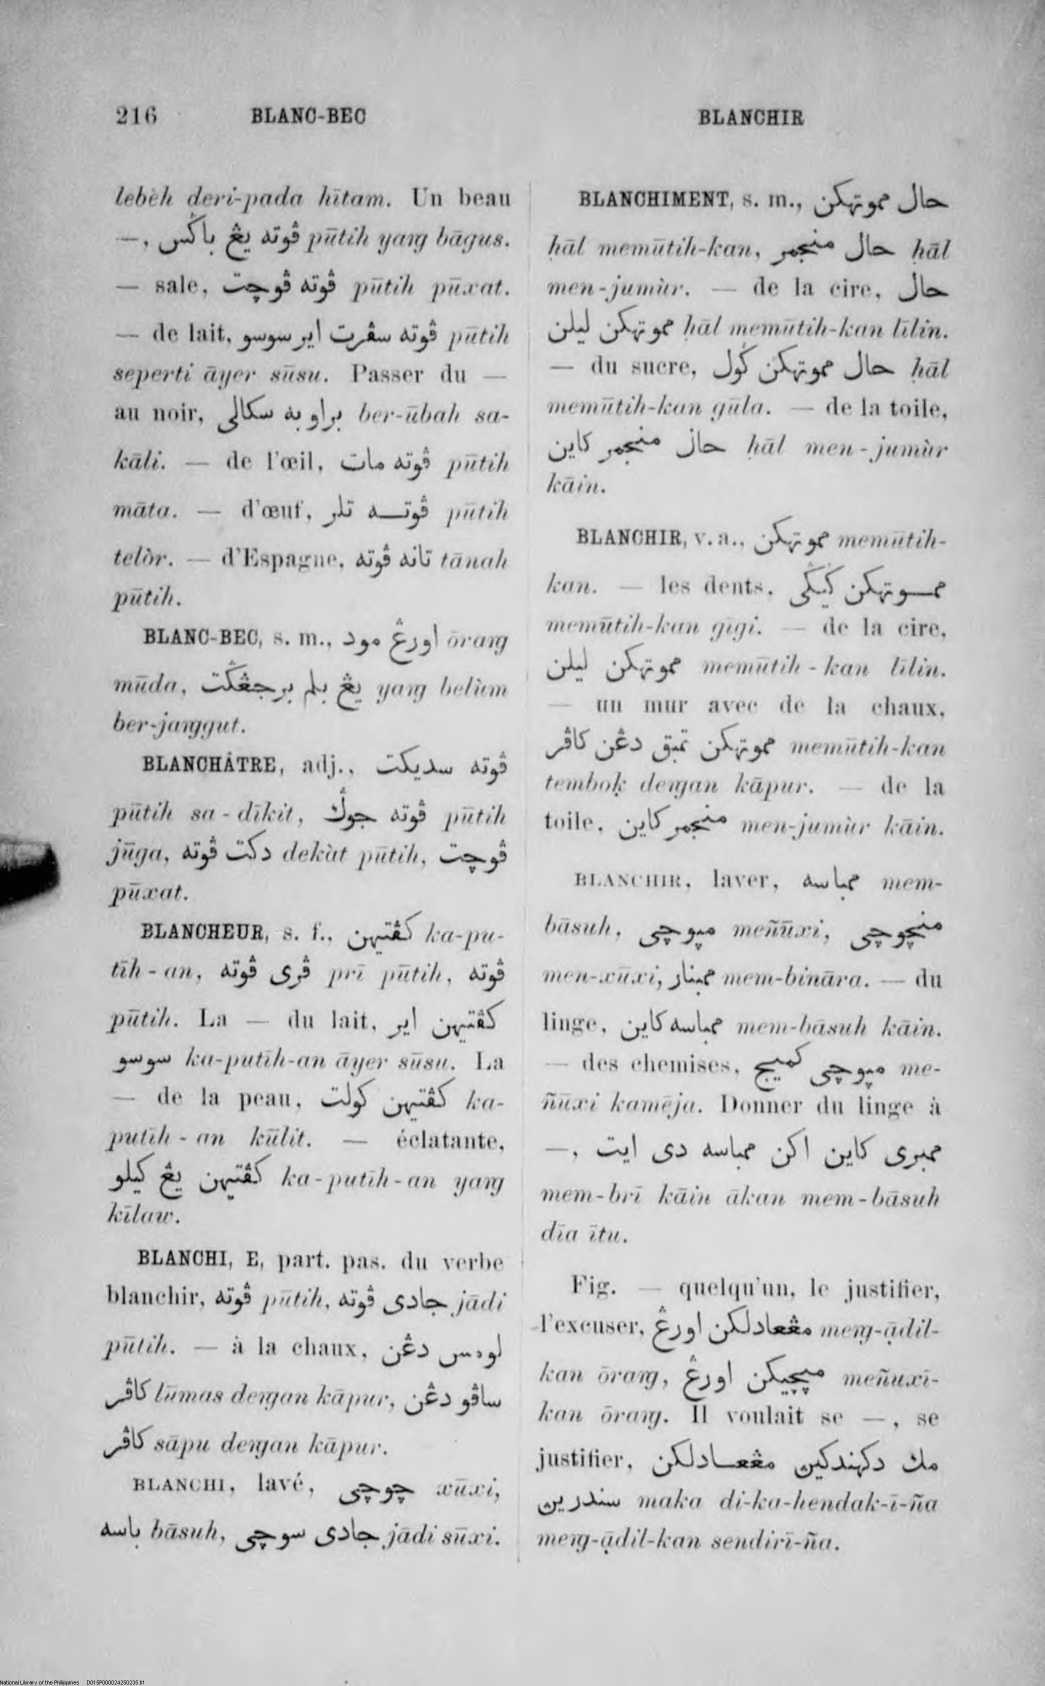 216 BLANC-BEC BLANCHIR
lebèh deri-pada hītam. Un beau
—, ڤوته يڠ باݢس pūtih yaṅg bāgus.
— sale, ڤوته ڤوچت pūtih pūxat.
— de lait, ڤوته سڤرت اير سوسو pūtih
seperti āyer sūsu. Passer du —
au noir, براوبه سكالي ber-ūbah sa-
kāli. — de l'œil, ڤوته مات pūtih
māta. — d'œuf, ڤوته تلر pūtih
telòr. — d'Espagne, تانه ڤوته tānah
pūtih.
BLANC-BEC, s. m., اورڠ مود ōraṅg
mūda, يڠ بلم برجڠݢت yaṅg belùm
ber-jaṅggut.
BLANCHÂTRE, adj., ڤوته سديكت
pūtih sa-dīkit, ڤوته جوݢ pūtih
jūga, دكت ڤوته dekàt pūtih, ڤوچت
pūxat.
BLANCHEUR, s. f., كڤتيهن ka-pu-
tīh-an, ڤري ڤوته prī pūtih, ڤوته
pūtih. La — du lait, كڤتيهن اير
سوسو ka-putīh-an āyer sūsu. La
— de la peau, كڤتيهن كولت ka-
putīh-an kūlit. — éclatante,
كڤتيهن يڠ كيلو ka-putīh-an yaṅg
kīlaw.
BLANCHI, E, part. pas. du verbe
blanchir, ڤوته pūtih, جادي ڤوته jādi
pūtih. — à la chaux, لومس دڠن
كاڤر lūmas deṅgan kāpur, ساڤو دڠن
كاڤر sāpu deṅgan kāpur.
BLANCHI, lavé, چوچي xūxi,
باسه bāsuh, جادي سوچي jādi sūxi.
BLANCHIMENT, s. m., حال مموتهكن
ḥāl memūtih-kan, حال منجمر ḥāl
men-jumùr. — de la cire, حال
مموتهكن ليلن ḥāl memūtih-kan līlin.
— du sucre, حال مموتهكن ݢول ḥāl
memūtih-kan gūla. — de la toile,
حال منجمر كاين ḥāl men-jumùr
kāin.
BLANCHIR, v. a., مموتهكن memūtih-
kan. — les dents, مموتهكن ݢيݢي
memūtih-kan gīgi. — de la cire,
مموتهكن ليلن memūtih-kan līlin.
— un mur avec de la chaux,
مموتهكن تمبق دڠن كاڤر memūtih-kan
temboḳ deṅgan kāpur. — de la
toile, منجمر كاين men-jumùr kāin.
BLANCHIR, laver, ممباسه mem-
bāsuh, ميوچي meñūxi, منچوچي
men-xūxi, ممبنار mem-bināra. — du
linge, ممباسه كاين mem-bāsuh kāin.
— des chemises, ميوچي كميج me-
ñūxi kamēja. Donner du linge à
—, ممبري كاين اكن ممباسه دي ايت
mem-brī kāin ākan mem-bāsuh
dīa ītu.
Fig. — quelqu'un, le justifier,
l'excuser, مڠعادلكن اورڠ meṅg-ạ̄dil-
kan ōraṅg, ميچيكن اورڠ meñuxī-
kan ōraṅg. Il voulait se —, se
justifier, مك دكهندكين مڠعادلكن
سندرين maka di-ka-hendak-ī-ña
meṅg-ạ̄dil-kan sendirī-ña.
National Library of the Philippines